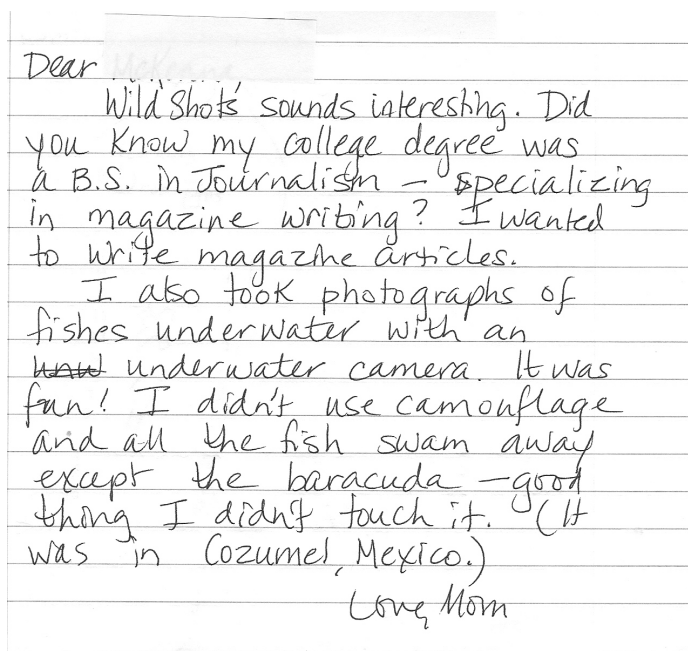 Dear
Wild Shots sounds interesting. Did
you know my college degree was
a B.S. in Journalism – specializing
in magazine writing? I wanted
to write magazine articles.
I also took photographs of
fishes underwater with an
underwater camera. It was
fun! I didn't use camouflage
and all the fish swam away
except the baracuda – good
thing I didn't touch it. (It
was in Cozumel, Mexico.)
Love, Mom